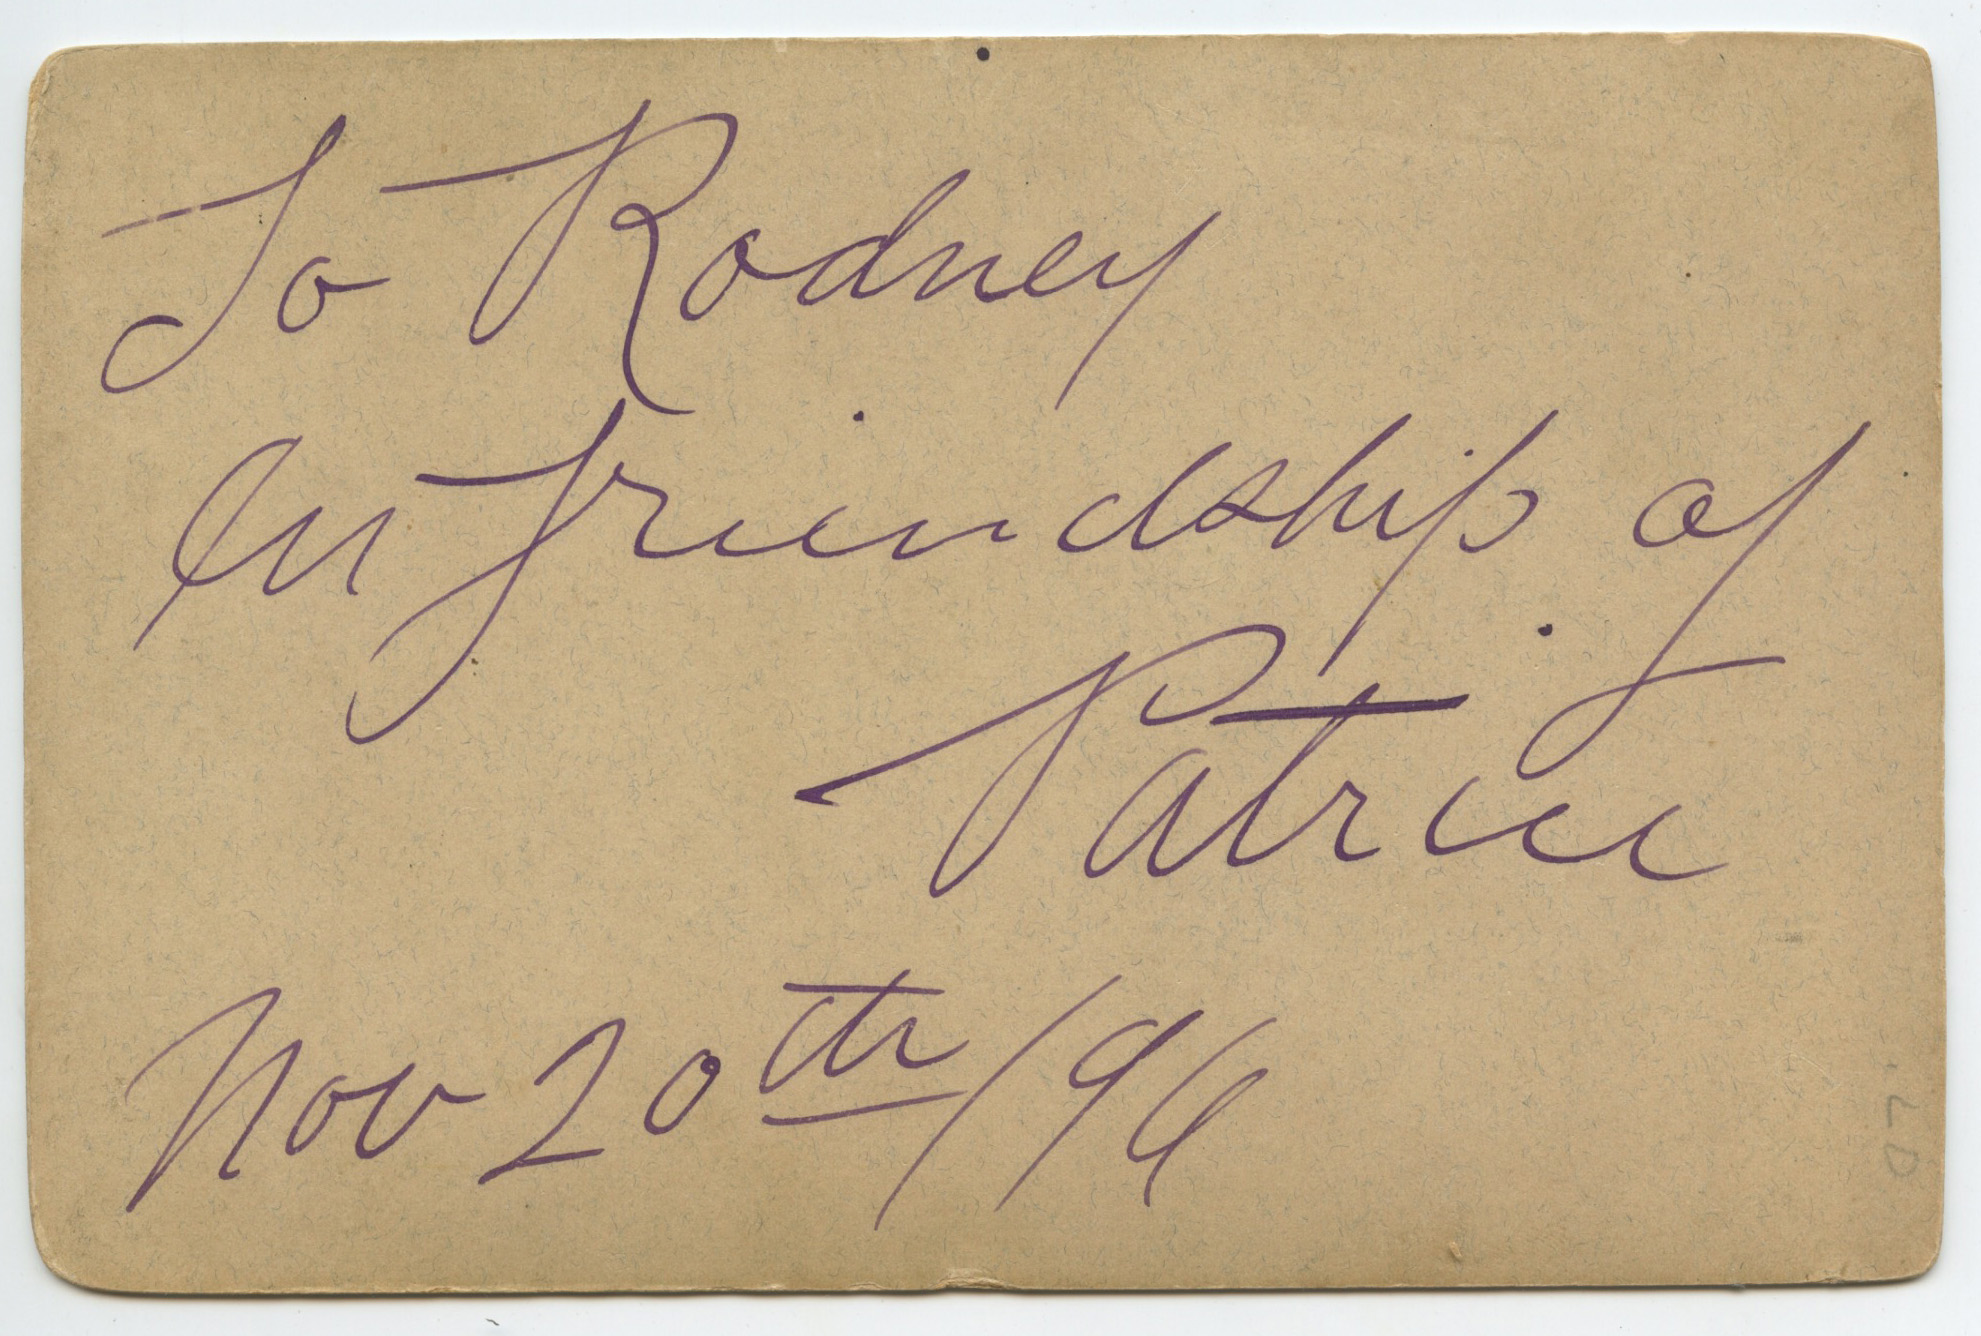 To Rodney
In friendship of
Patrice
Nov 20th/96